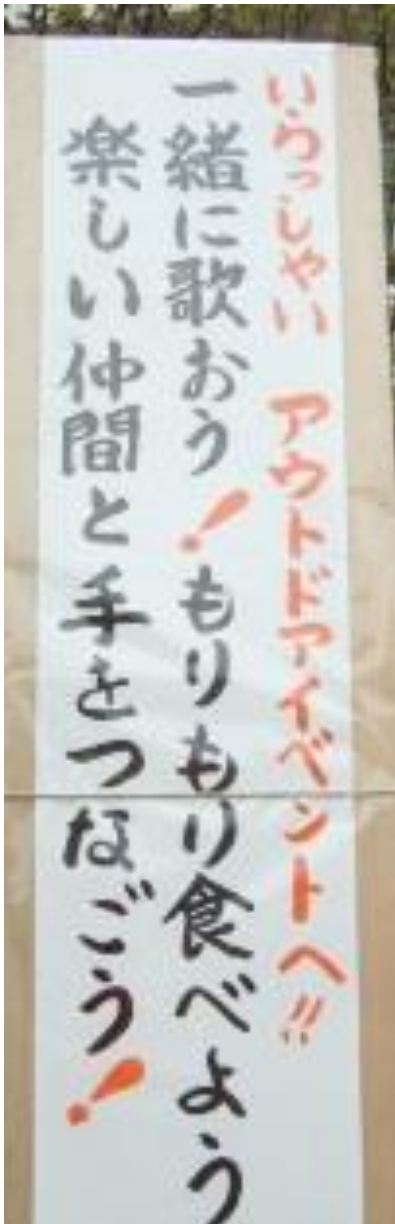 いらっしゃい アウトドアイベントへ!!
一緒に歌おう!もりもり食べよう
楽しい仲間と手をつなごう!